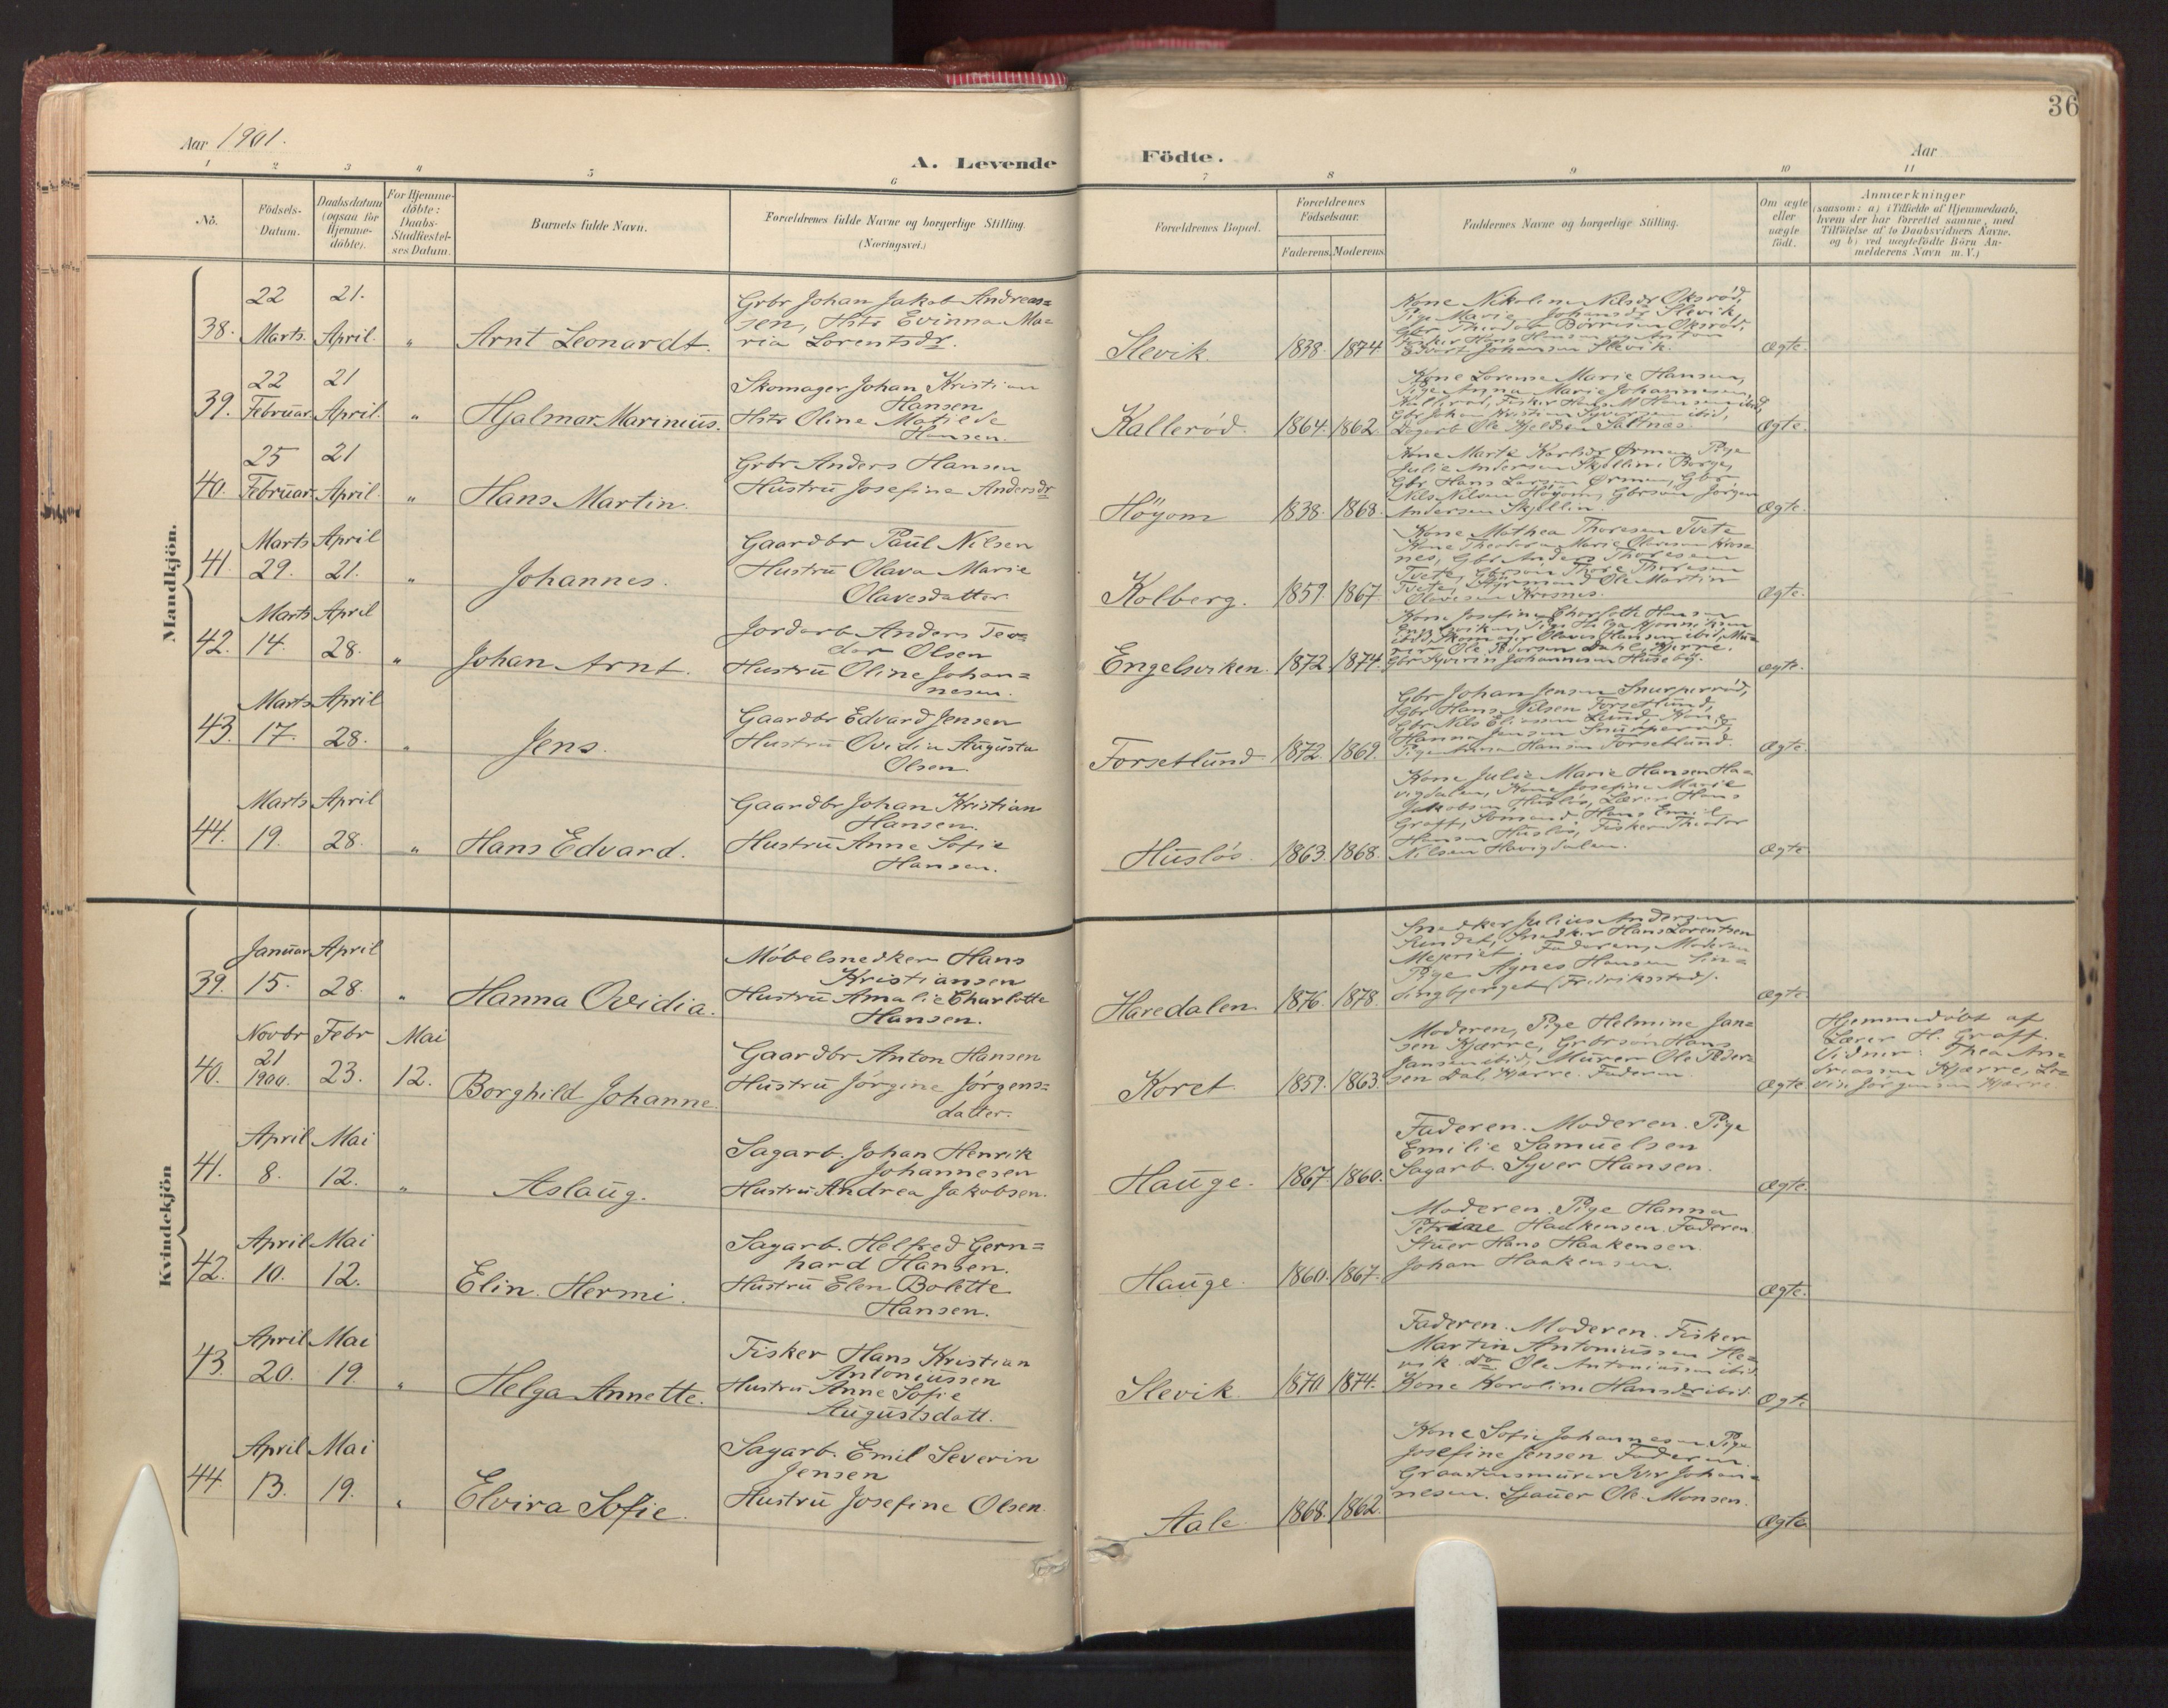 36
Aar 1901.
A. Levende
Födte.
Aar
1 2 3 4 5 6 7 8 9 10 11
No.
Födsels-
Datum.
Daabsdatum
(ogsaa for
Hjemme-
döbte).
For Hjemme-
döbte:
Daabs-
Stadfæstel-
ses Datum.
Barnets fulde Navn.
Forældrenes fulde Navne og borgerlige Stilling.
(Næringsvei.)
Forældrenes Bopæl.
Forældrenes
Födselsaar.
Faderens. Moderens.
Faddernes Navne og borgerlige Stilling.
Om ægte
eller
uægte
födt.
Anmærkninger
(saasom: a) i Tilfælde af Hjemmedaab,
hvem der har forrettet samme, med
Tilföielse af to Daabsvidners Navne,
og b) ved uægtefödte Börn An-
melderens Navn m. V.)
Mandkjön.
38.
22
Marts.
21.
April.
"
Arnt Leonardt.
Grbr Johan Jakob Andreas=
sen, Hstr Evinna Ma=
ria Lorentsdr.
Slevik.
1838. 1874
Kone Nikoline Nilsdr Oksrød,
Pige Marie Johansdr Slevik,
Gbr Theodor Børresen Oksrød,
Fisker Hans Hansen og Anton
Edvart Johansen Slevik.
Ægte.
39.
22
Februar.
21
April.
"
Hjalmar Marinius.
Skomager Johan Kristian
Hansen
Hstr Oline Matilde
Hansen.
Kallerød.
1864. 1862.
Kone Lorense Marie Hansen,
Pige Anna Marie Johannesen,
Kallerød, Fisker Hans M Hansen ibid,
Gbr Johan Kristian Syversen ibid,
Dagarb Ole Kjeldsen Saltnæs.
Ægte.
40.
25
Februar.
21
April.
"
Hans Martin.
Grbr Anders Hansen
Hustru Josefine Andersdr
Höyom
1838. 1868.
Kone Marte Karlsdr Ørmen, Pige
Julie Andersen Skjellin, Borge,
Gbr Hans Larsen Ørmen, Gbr
Nils Nilsen Höyom, Gbrsön Jørgen
Andersen Skjellin.
Ægte.
41.
Marts
29.
April
21.
"
Johannes.
Gaardbr Paul Nilsen
Hustru Olava Marie
Olavesdatter
Kolberg.
1859. 1867.
Kone Mathea Thoresen Tvete
Kone Theodora Marie Olavesen Kros=
nes, Gbr Anders Thoresen
Tvete, Gbrsön Thore Thoresen
Tvete, Styrmand Ole Martin
Olavesen Krosnes.
Ægte.
42.
Marts
14.
April
28.
"
Johan Arnt.
Jordarb Anders Teo=
dor Olsen
Hustru Oline Johan=
nesen.
Engelsviken.
1872 1874.
Kone Josefine Charlotte Hansen
Engelsviken, Pige Helga Kornelia
ibid, Skomager Olaves Hansen ibid, Mu=
rer Ole Pedersen Dahl, Kjærre.
Gbr Syverin Johannesen Huseby.
Ægte.
43.
Marts
17.
April
28.
"
Jens.
Gaardbr Edvard Jensen
Hustru Ovidia Augusta
Olsen.
Forsetlund
1872. 1869.
Gbr Johan Jensen Snurperød,
Gbr Hans Nilsen Forsetlund,
Gbr Nils Eliassen Lund, Kone
Hanna Jensen Snurperød,
Pige Anna Hansen Forsetlund.
Ægte.
44.
Marts
19.
April
28.
"
Hans Edvard.
Gaardbr Johan Kristian
Hansen.
Hustru Anne Sofie
Hansen.
Husløs.
1863. 1868.
Kone Julie Marie Hansen Ha=
vigdalen, Kone Josefine Marie
Jakobsen Husløs, Lærer Hans
Graff, Sömand Hans Emil
Hansen Husløs, Fisker Theodor
Nilsen Havigdalen.
Ægte
Kvindekjön
39.
Januar
15.
April
28.
"
Hanna Ovidia.
Møbelsnedker Hans
Kristiansen
Hustru Amalie Charlotte
Hansen.
Haredalen
1876. 1878.
Snedker Julius Andersen
Sundet, Snedker Hans Lorentsen
Mejeriet. Faderen, Moderen
Pige Agnes Hansen
(Fredriksstad).
Ægte
40.
Novbr
21
1900.
Febr
23.
Mai
12.
Borghild Johanne.
Gaardbr Anton Hansen
Hustru Jørgine Jørgens=
datter.
Koret
1859. 1863.
Moderen, Pige Helmine Jan=
sen Kjærre, Grbrsön Hans
Jansen ibid, Murer Ole Peder=
sen Dal, Kjærre. Faderen.
Ægte
Hjemmedøbt af
Lærer H. Graff.
Vidner: Thea An=
driassen Kjærre, Lo=
vise Jörgensen Kjærre
41.
April
8.
Mai
12.
"
Aslaug.
Sagarb. Johan Henrik
Johannesen
Hustru Andrea Jakobsen.
Hauge.
1867. 1860.
Faderen. Moderen. Pige
Emilie Samuelsen
Sagarb. Syver Hansen.
Ægte.
42.
April
10.
Mai
12.
Elin Hermi.
Sagarb. Helfred Gern=
hard Hansen.
Hustru Elen Bolette
Hansen.
Hauge.
1860. 1867.
Moderen. Pige Hanna
Petrine Haakensen. Faderen
Stuer Hans Haakensen.
Johan Haakensen.
Ægte.
43.
April
20.
Mai
19.
"
Helga Annette.
Fisker Hans Kristian
Antoniussen
Hustru Anne Sofie
Augustsdatt.
Slevik.
1870 1874.
Faderen. Moderen. Fisker
Martin Antoniussen Sle=
vik. do Ole Antoniussen ibid.
Kone Karoline Hansdr ibid.
Ægte
44
April
13.
Mai
19.
"
Elvira Sofie.
Sagarb. Emil Severin
Jensen
Hustru Josefine Olsen.
Aale.
1868. 1862.
Kone Sofie Johannesen Pige
Josefine Jensen Faderen.
Graastensmurer Iver Johan=
nesen. Sjauer Ole Monsen.
Ægte